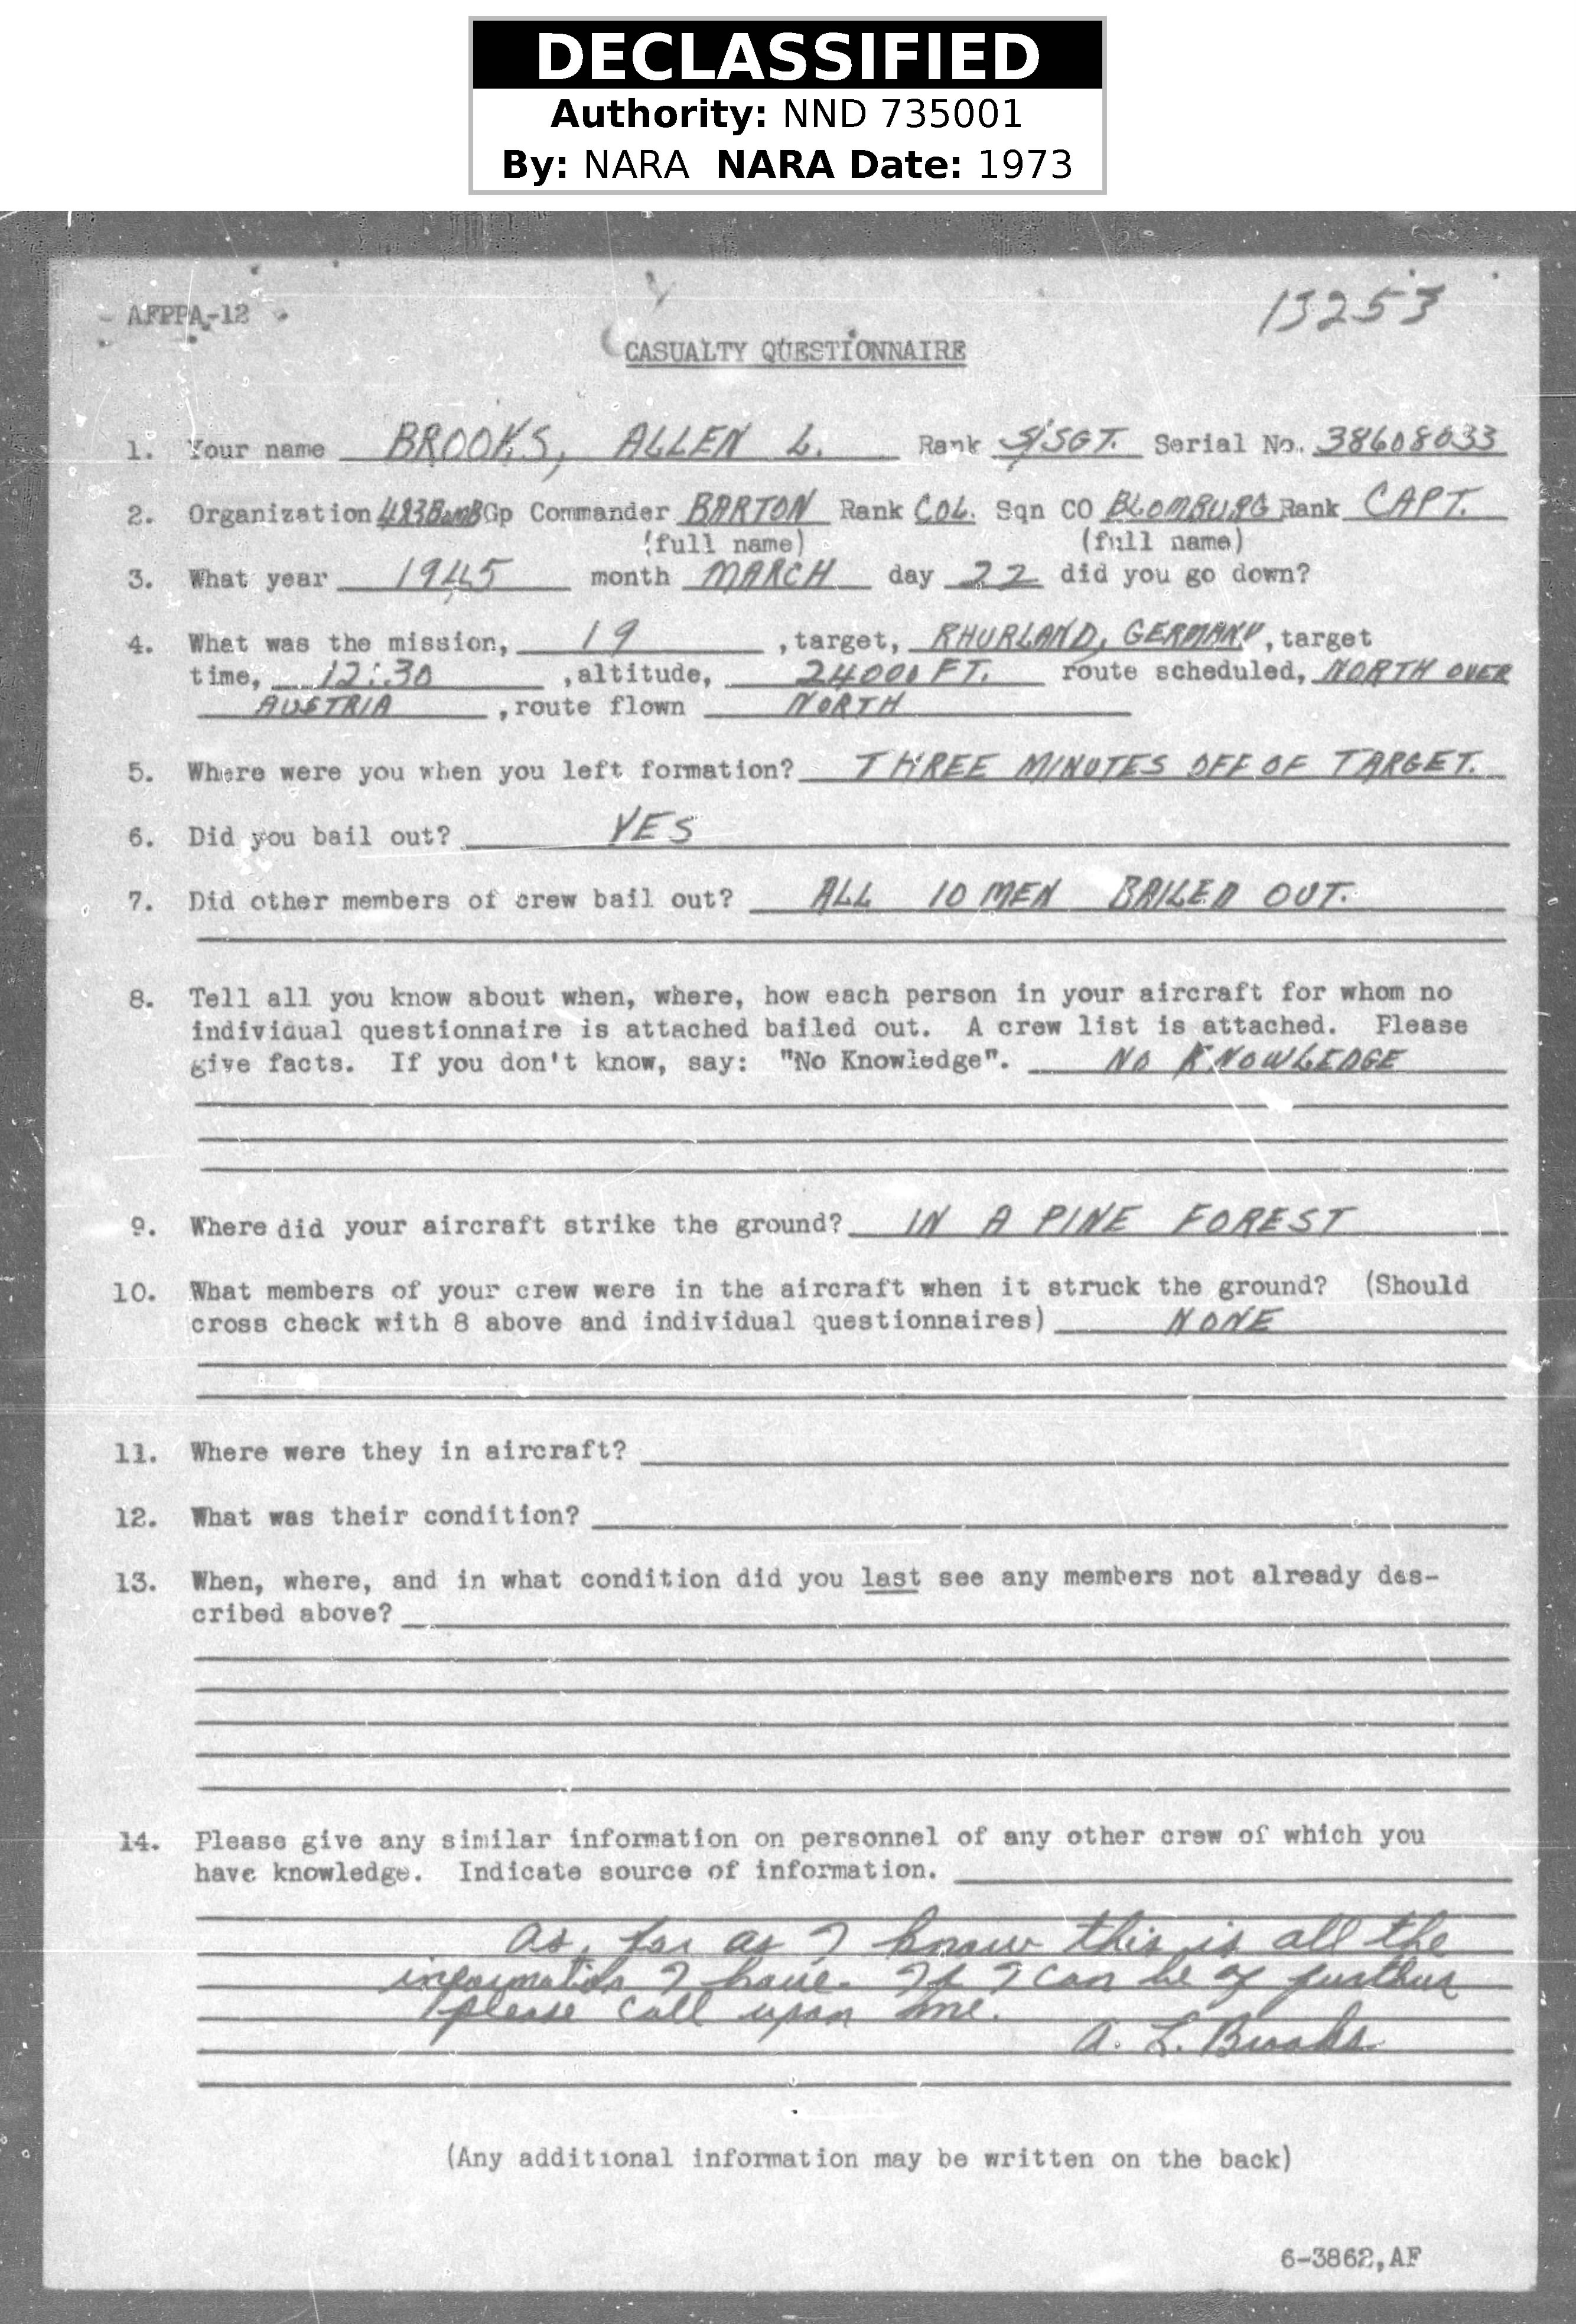 DECLASSIFIED
Authority: NND 735001
By: NARA NARA Date: 1973
AFPPA-12
13253
CASUALTY QUESTIONNAIRE
1. Your name BROOKS, ALLEN L. Rank S/SGT. Serial No. 38608033
2. Organization 483BombGp Commander BARTON Rank COL. Sqn CO BLOMBURG Rank CAPT.
(full name) (full name)
3. What year 1945 month MARCH day 22 did you go down?
4. What was the mission, 19 ,target, RHURLAND, GERMANY, target
time, 12:30 ,altitude, 24000 FT. route scheduled, NORTH OVER
AUSTRIA ,route flown NORTH
5. Where were you when you left formation? THREE MINUTES OFF OF TARGET.
6. Did you bail out? YES
7. Did other members of crew bail out? ALL 10 MEN BAILED OUT.
8. Tell all you know about when, where, how each person in your aircraft for whom no
individual questionnaire is attached bailed out. A crew list is attached. Please
give facts. If you don't know, say: "No Knowledge". NO KNOWLEDGE
9. Where did your aircraft strike the ground? IN A PINE FOREST
10. What members of your crew were in the aircraft when it struck the ground? (Should
cross check with 8 above and individual questionnaires) NONE
11. Where were they in aircraft?
12. What was their condition?
13. When, where, and in what condition did you last see any members not already des-
cribed above?
14. Please give any similar information on personnel of any other crew of which you
have knowledge. Indicate source of information.
as, far as I know this is all the
information I have. If I can be of further
please call upon me.
A. L. Brooks
(Any additional information may be written on the back)
6-3862,AF